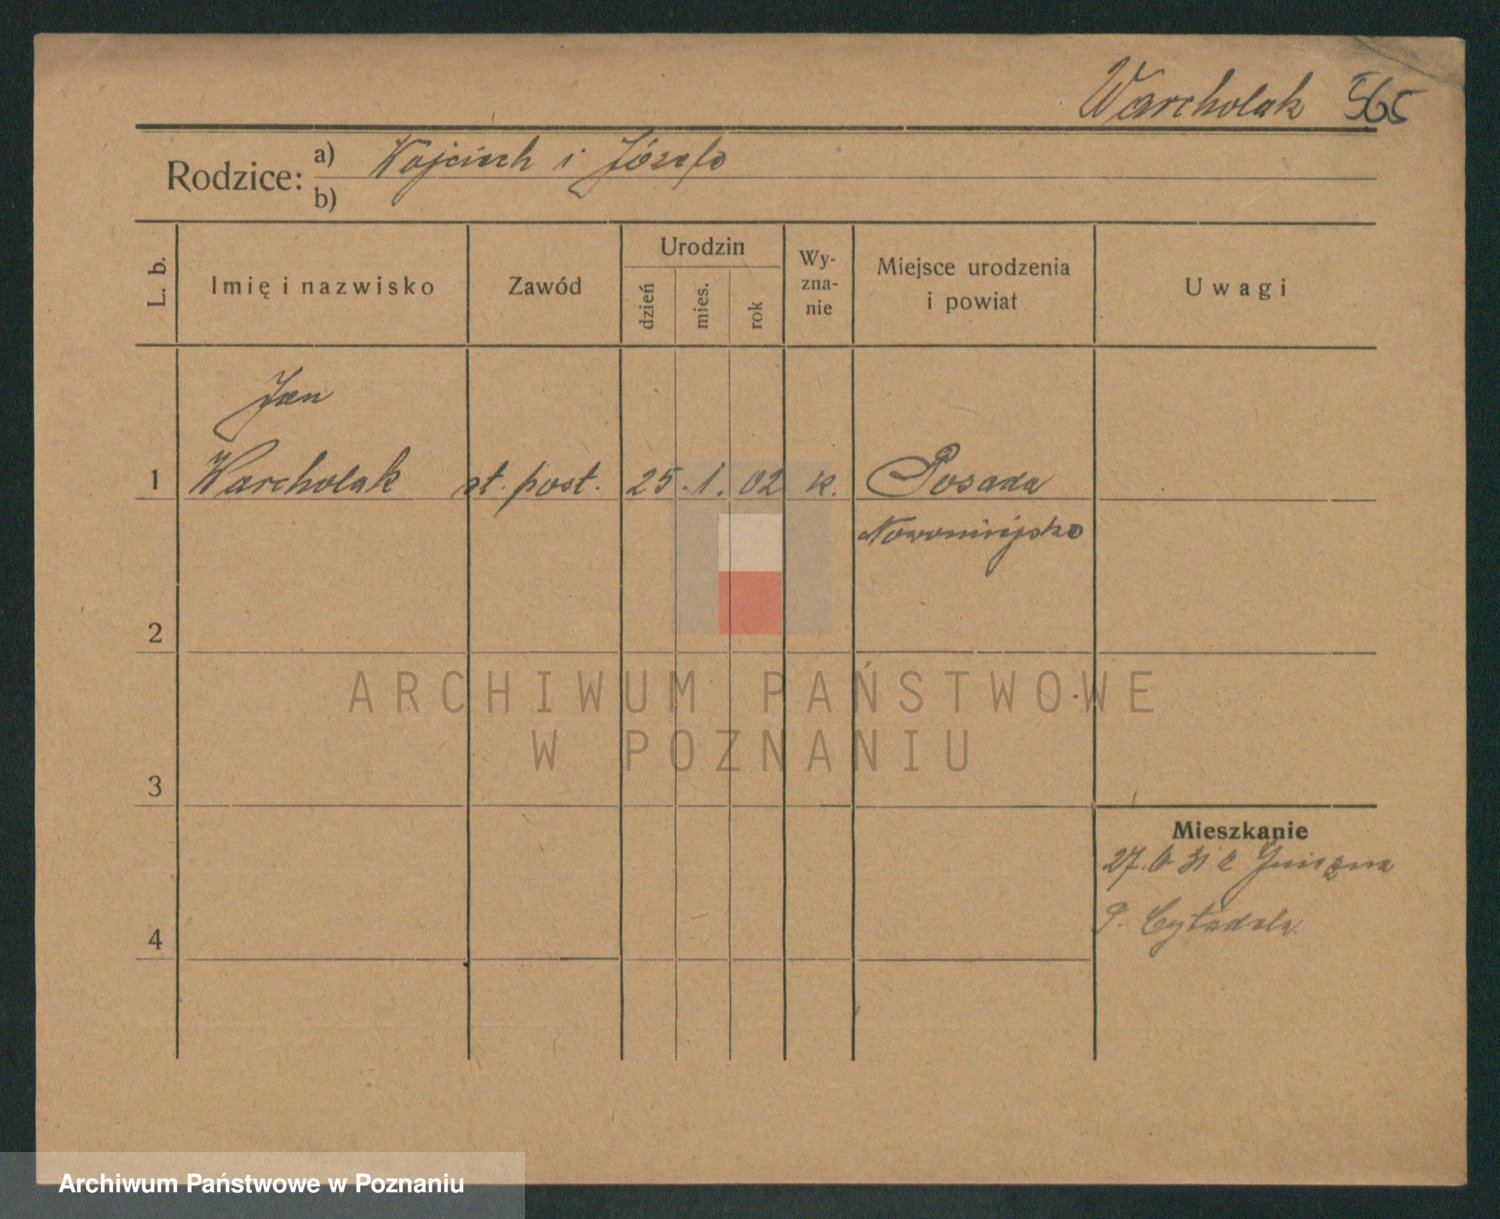 Warcholak 565
Rodzice:
a) Wojciech i Józefa
b)
L. b.
Imię i nazwisko
Zawód
Urodzin
dzień
mies.
rok
Wy-
zna-
nie
Miejsce urodzenia
i powiat
Uwagi
Jan
1 Warcholak st. post. 25. 1. 02 k. Posada
Nowomiejska
2
3
4
Mieszkanie
27. 6 31 z Gniezna
P. Cytadela
ARCHIWUM PAŃSTWOWE
W POZNANIU
Archiwum Państwowe w Poznaniu